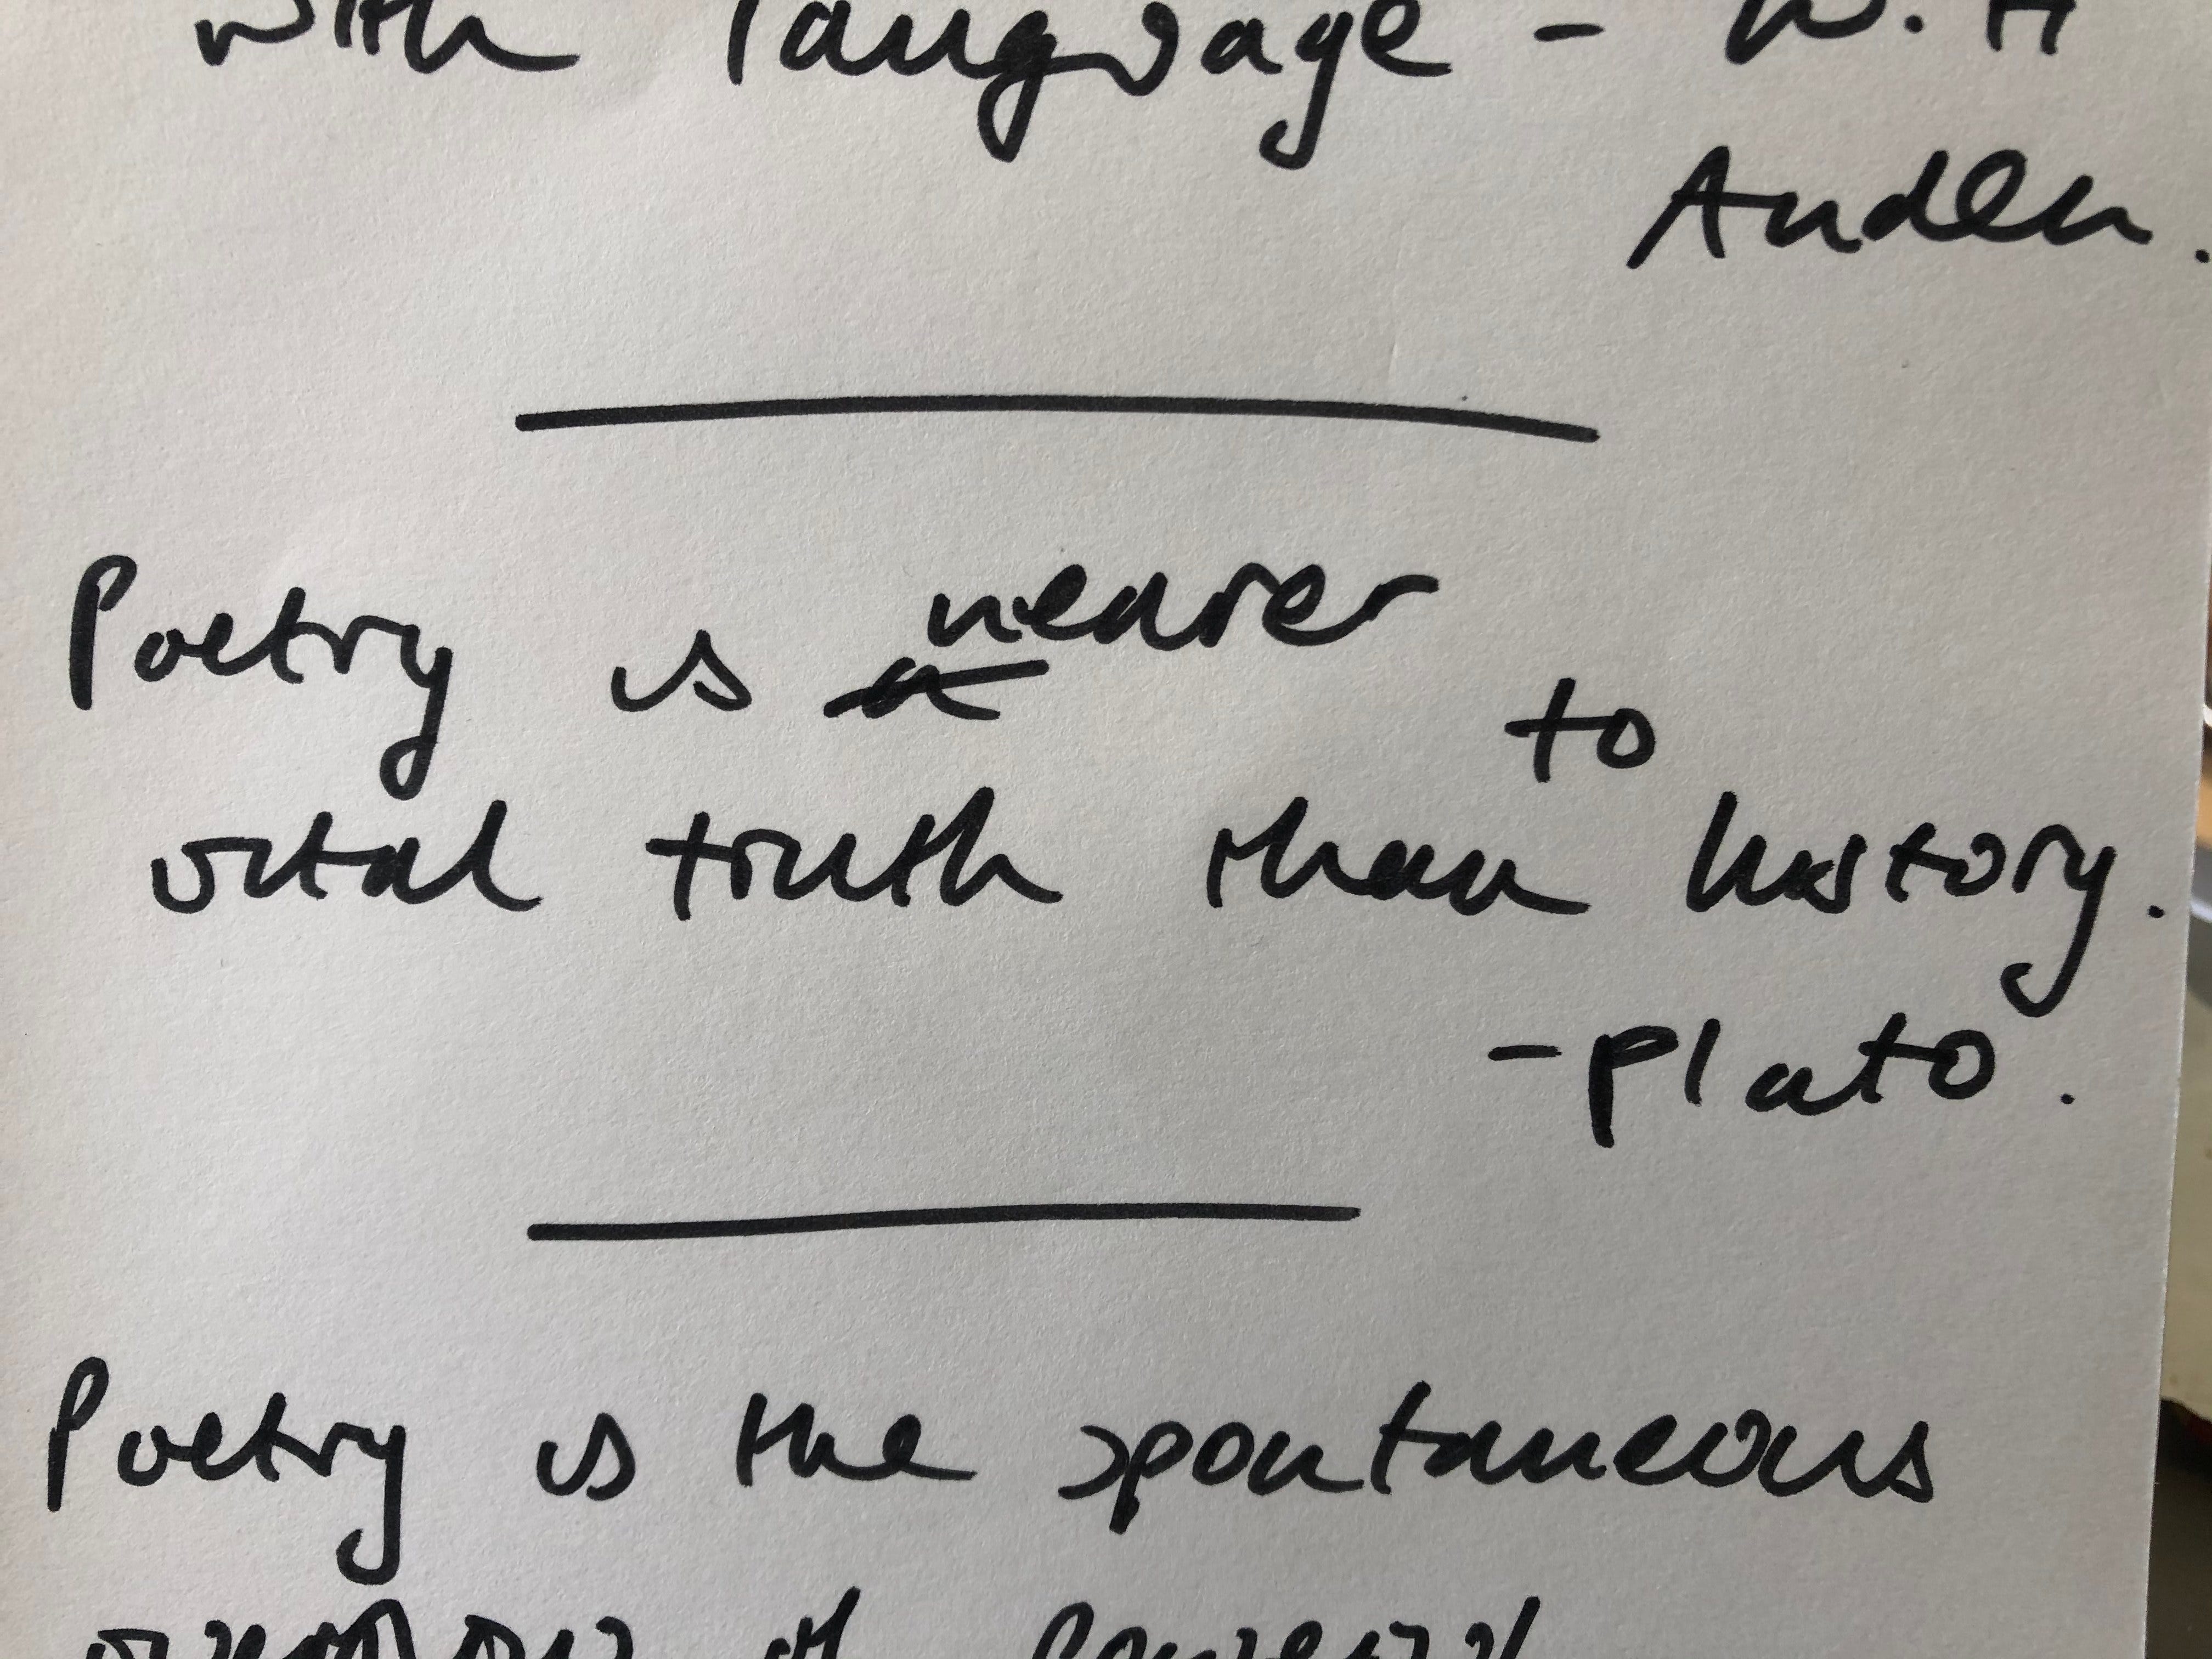 with language - W. H
Auden.
Poetry is a nearer
to
vital truth than history.
- Plato.
Poetry is the spontaneous
overflow of powerful